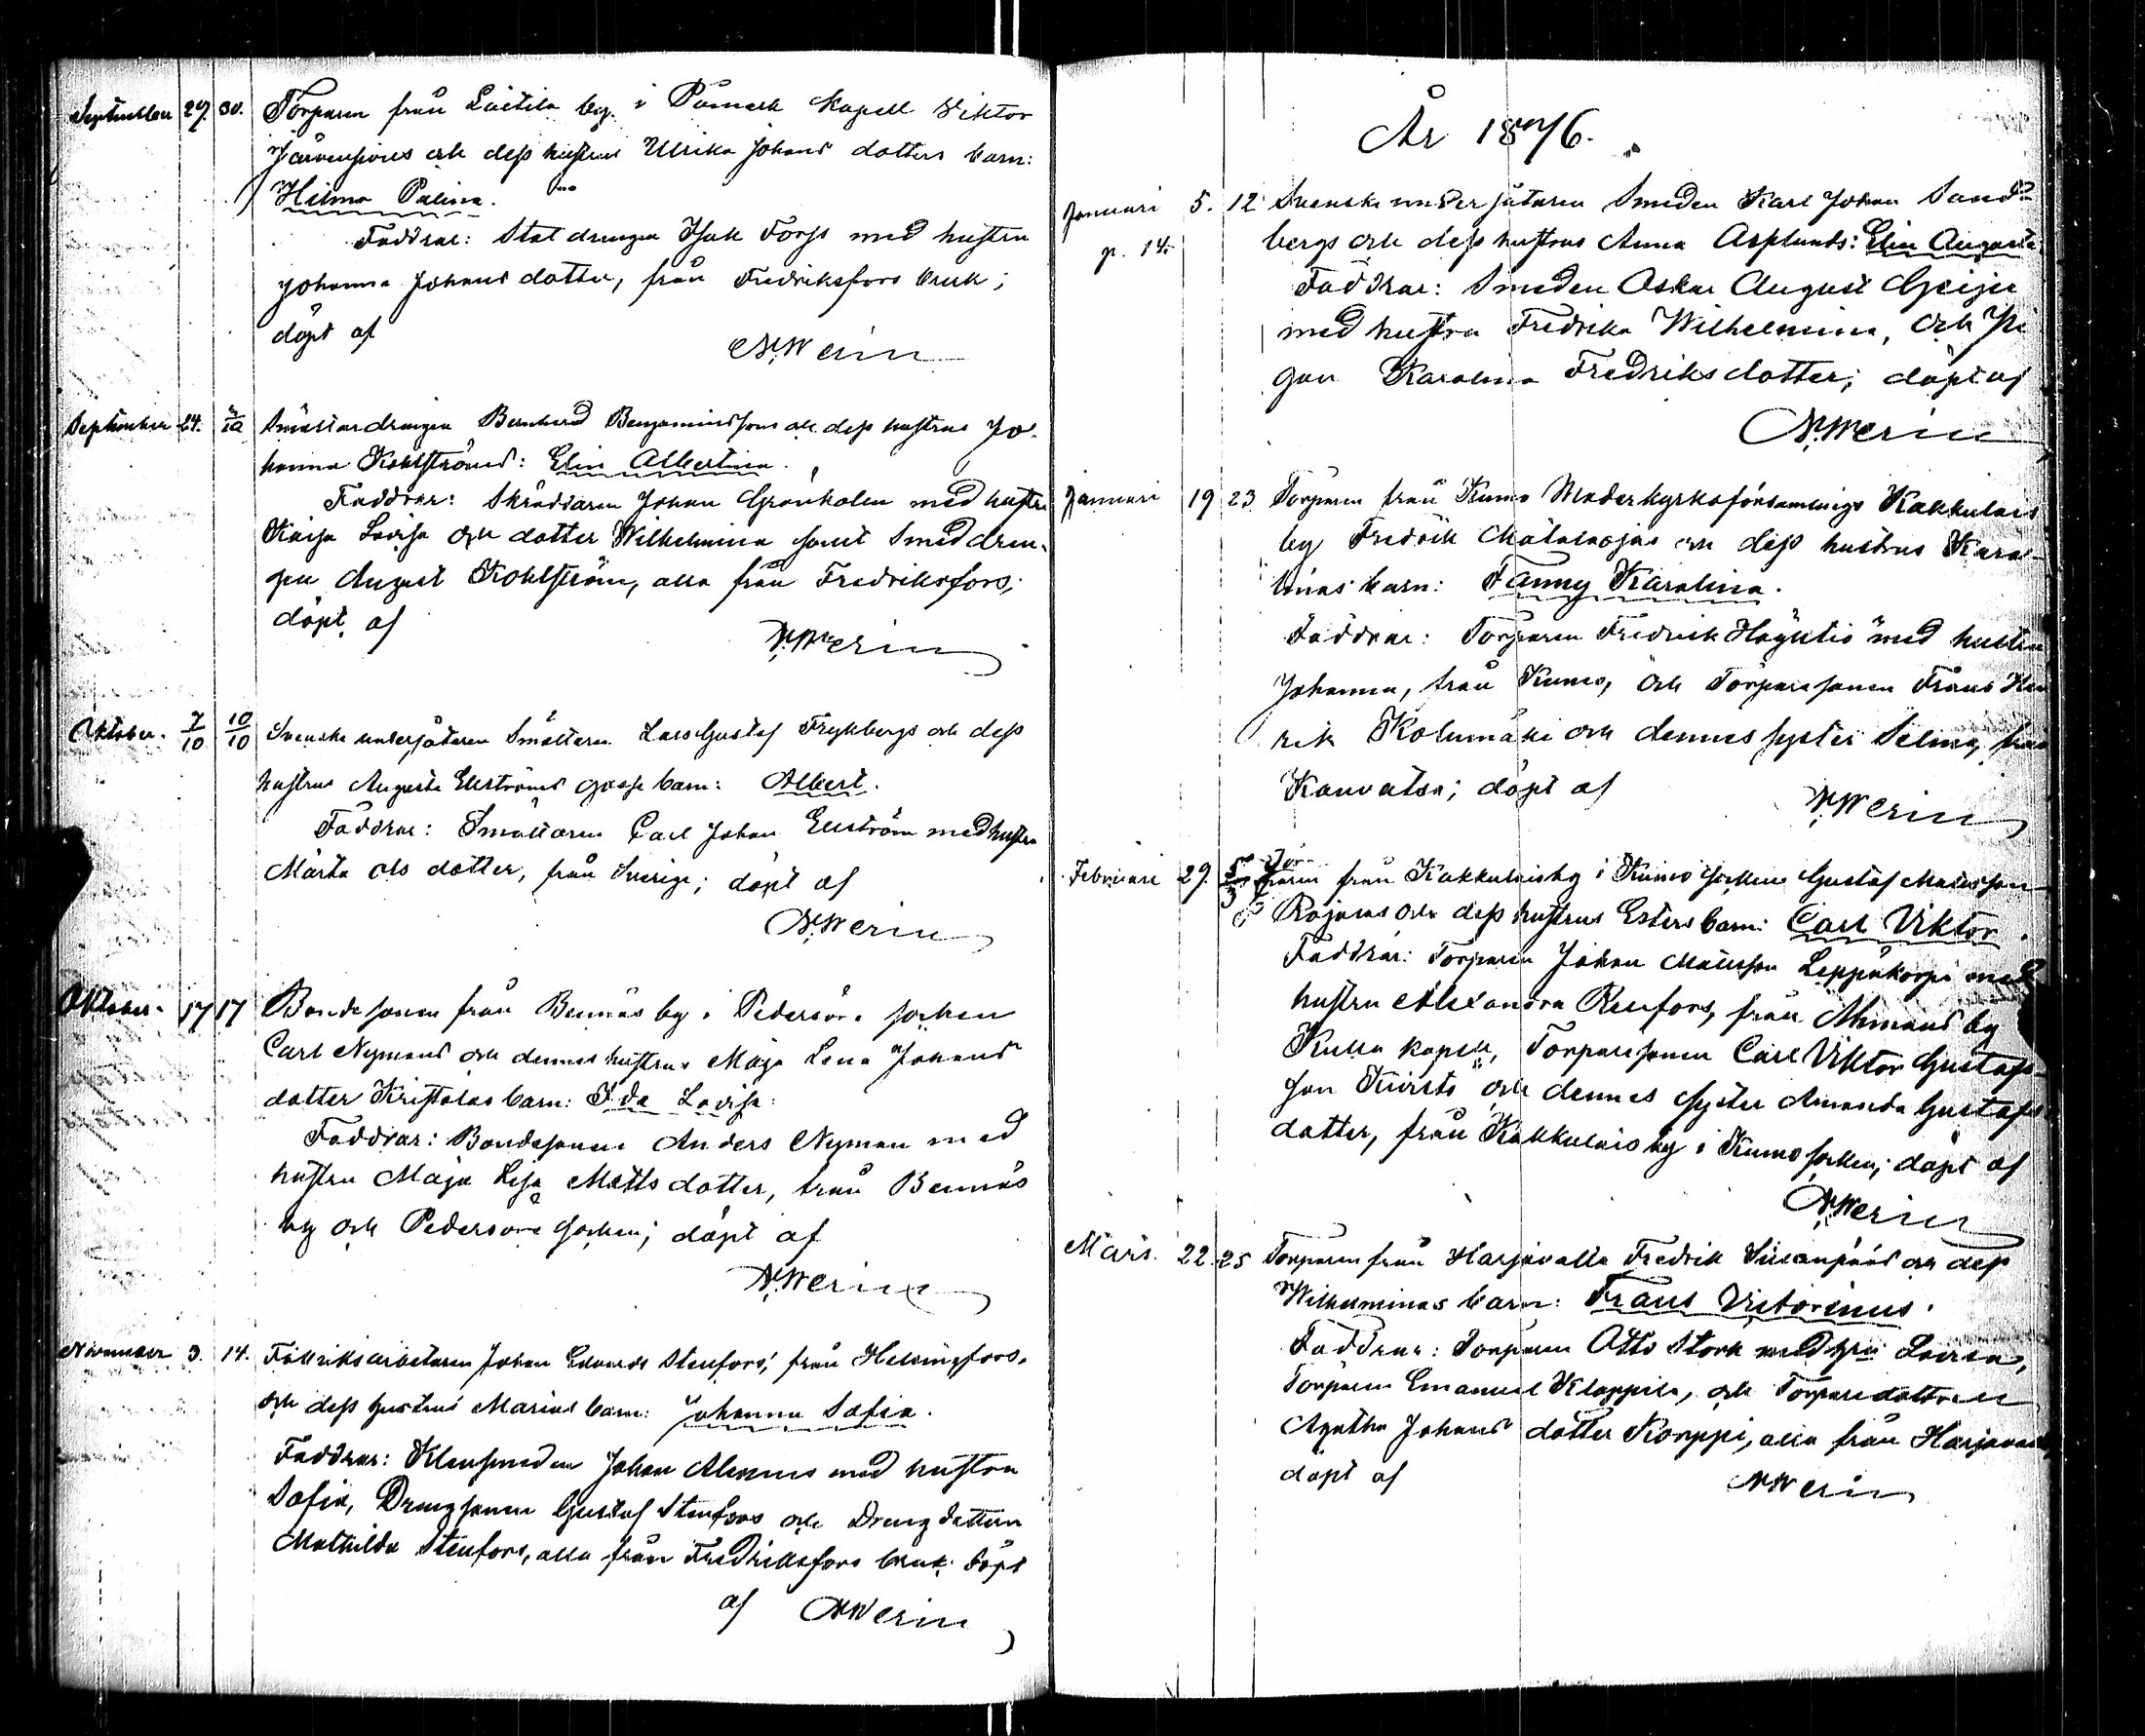 September 27. 30. Torparen från Läetila by. i Påmark kapell Viktor
Järvensivus och dess hustrus Ulrika Johans dotters barn:
Hilma Palina.
Faddrar: Stat drengen Isak Forss med hustru
Johanna Johans dotter, från Fredriksfors bruk;
döpt af
N. Werin
September 24. Smältardrengen Bernhard Benjaminssons och dess hustrus Jo-
hanna Kohlströms: Elin Albertina.
Faddrar: Skräddaren Johan Grönholm med hustru
Kaisa Lovisa och dotter Wilhelmina samt Smeddren-
gen August Kohlström, alla från Fredriksfors;
döpt af
N. Werin
Oktober. 7/10 10/10 Svenske undersåtaren Smältaren Lars Gustaf Frykbergs och dess
hustrus Augusta Ekströms gosse barn: Albert.
Faddrar: Smältaren Carl Johan Ekström med hustru
Märta Ols dotter, från Sverige; döpt af
N. Werin
Oktober. 17 17 Bondesonen från Bennäs by i Pedersöre socken
Carl Nymans och dennes hustrus Maja Lena Johans
dotter Kristolas barn: Ida Lovisa.
Faddrar: Bondesonen Anders Nyman med
hustru Maja Lisa Matts dotter, från Bennäs
by och Pedersöre socken; döpt af
N. Werin
November 3. 14. Fabriksarbetaren Johan Edvards Stenfors, från Helsingfors,
och dess hustrus Marias barn: Johanna Sofia.
Faddrar: Klensmeden Johan Alenius med hustru
Sofia, Drengsonen Gustaf Stenfors och Drengdottern
Mathilda Stenfors, alla från Fredriksfors bruk; döpt
af N. Werin
År 1876.
Januari 5. 12 Svenske undersåtaren Smeden Karl Johan Sand-
p. 14. bergs och dess hustrus Anna Asplunds: Elin Augusta
Faddrar: Smeden Oskar August Geijer
med hustru Fredrika Wilhelmina, och Pi
gan Karolina Fredriksdotter; döpt af
N. Werin
Januari 19 23 Torparen från Kumo Moderkyrkoförsamlings Kakkulais
by Fredrik Matalaojas och dess hustrus Karo-
linas barn: Fanny Karolina.
Faddrar: Torparen Fredrik Häyhtiö med hustru
Johanna, från Kumo, och Torparesonen Frans Hen
rik Kolumäki och dennes syster Selma, från
Kauvatsa; döpt af
N. Werin
Februari 29. 5/3 Torparen från Kakkulaisby i Kumo socken Gustaf Matsson
Rajalas och dess hustrus Esters barn: Carl Viktor.
Faddrar: Torparen Johan Matsson Leppäkorpi med
hustru Alexandra Renfors, från Ahmaus by
Kulla kapell, Torparesonen Carl Viktor Gustafs-
son Kiviste och dennes syster Amanda Gustafs
dotter, från Kakkulais by i Kumo socken; döpt af
N. Werin
Mars. 22. 25 Torparen från Harjavalta Fredrik Siilanpääs och dess
Wilhelminas barn: Frans Victorinus.
Faddrar: Torparen Otto Stork med Lovisa,
Torparen Emanuel Kloppila, och Torparedottren
Agatha Johans dotter Korppi, alla från Harjavalta,
döpt af N. Werin